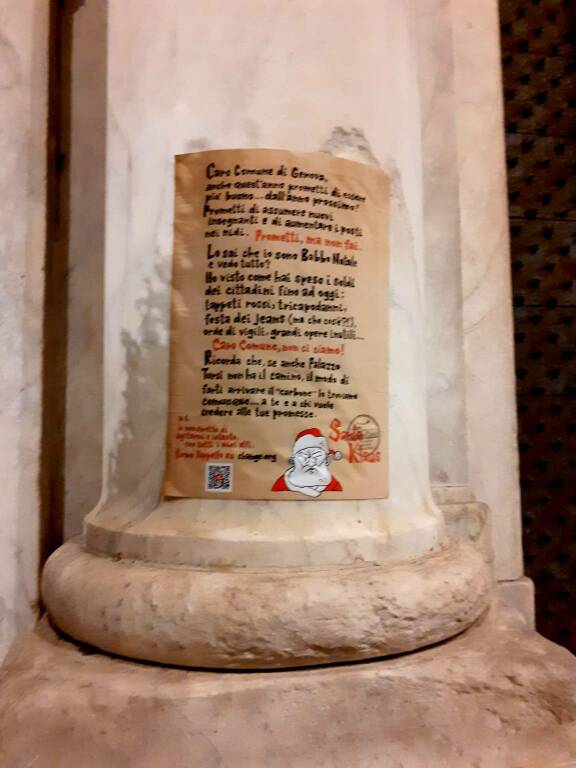 Caro Comune di Genova,
anche quest'anno prometti di essere
piu' buono... dall'anno prossimo!
Prometti di assumere nuovi
insegnanti e di aumentare i posti
nei nidi. Prometti, ma non fai.
Lo sai che io sono Babbo Natale
e vedo tutto?
Ho visto come hai speso i soldi
dei cittadini fino ad oggi:
tappeti rossi, tricapodanni,
festa dei jeans (ma che cos'è?!),
orde di vigili, grandi opere inutili...
Caro Comune, non ci siamo!
Ricorda che, se anche Palazzo
Tursi non ha il camino, il modo di
farti arrivare il "carbone" lo troviamo
comunque... a te e a chi vuole
credere alle tue promesse.
P.S.
io non smetto di
con tutti i miei elfi.
Firma l'appello su change.org
Santa
Klaus